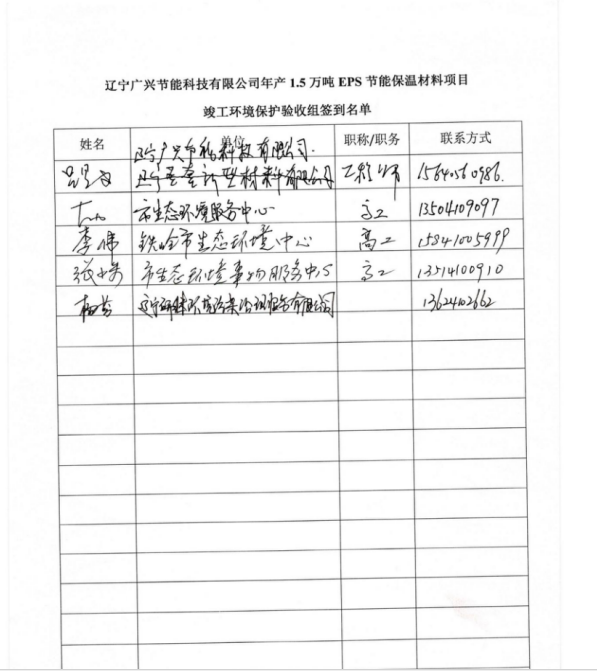 辽宁广兴节能科技有限公司年产 1.5 万吨 EPS 节能保温材料项目
竣工环境保护验收组签到名单
姓名 单位 职称/职务 联系方式
辽宁广兴节能科技有限公司.
辽宁 新型材料有限公司 工程师 15640560986.
市生态环境服务中心 高工 13504109097
李伟 铁岭市生态环境中心 高工 15841005999
张 市生态环境事物服务中心 高工 13514100910
杨芳 辽宁 环境污染治理服务有限公司 13624102662